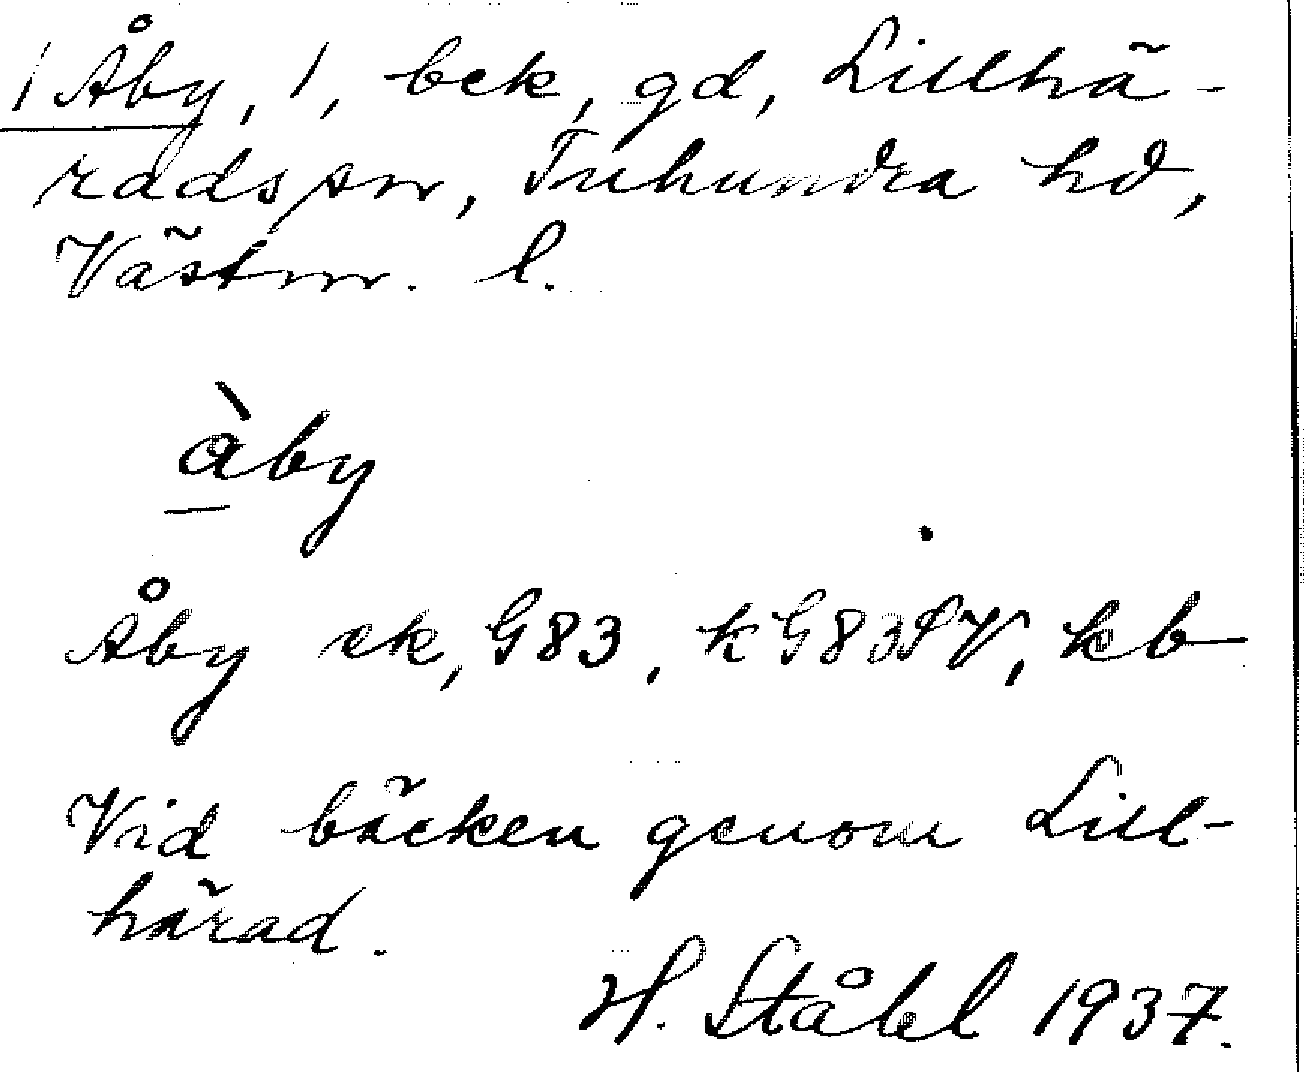 1 Åby, 1, bek, gd, Lillhä-
radssn, Tuhundra hd,
Västm. l.
åby
Åby ek, G83, kG83SV, kb
Vid bäcken genom Lill-
härad.
H. Ståhl 1937.